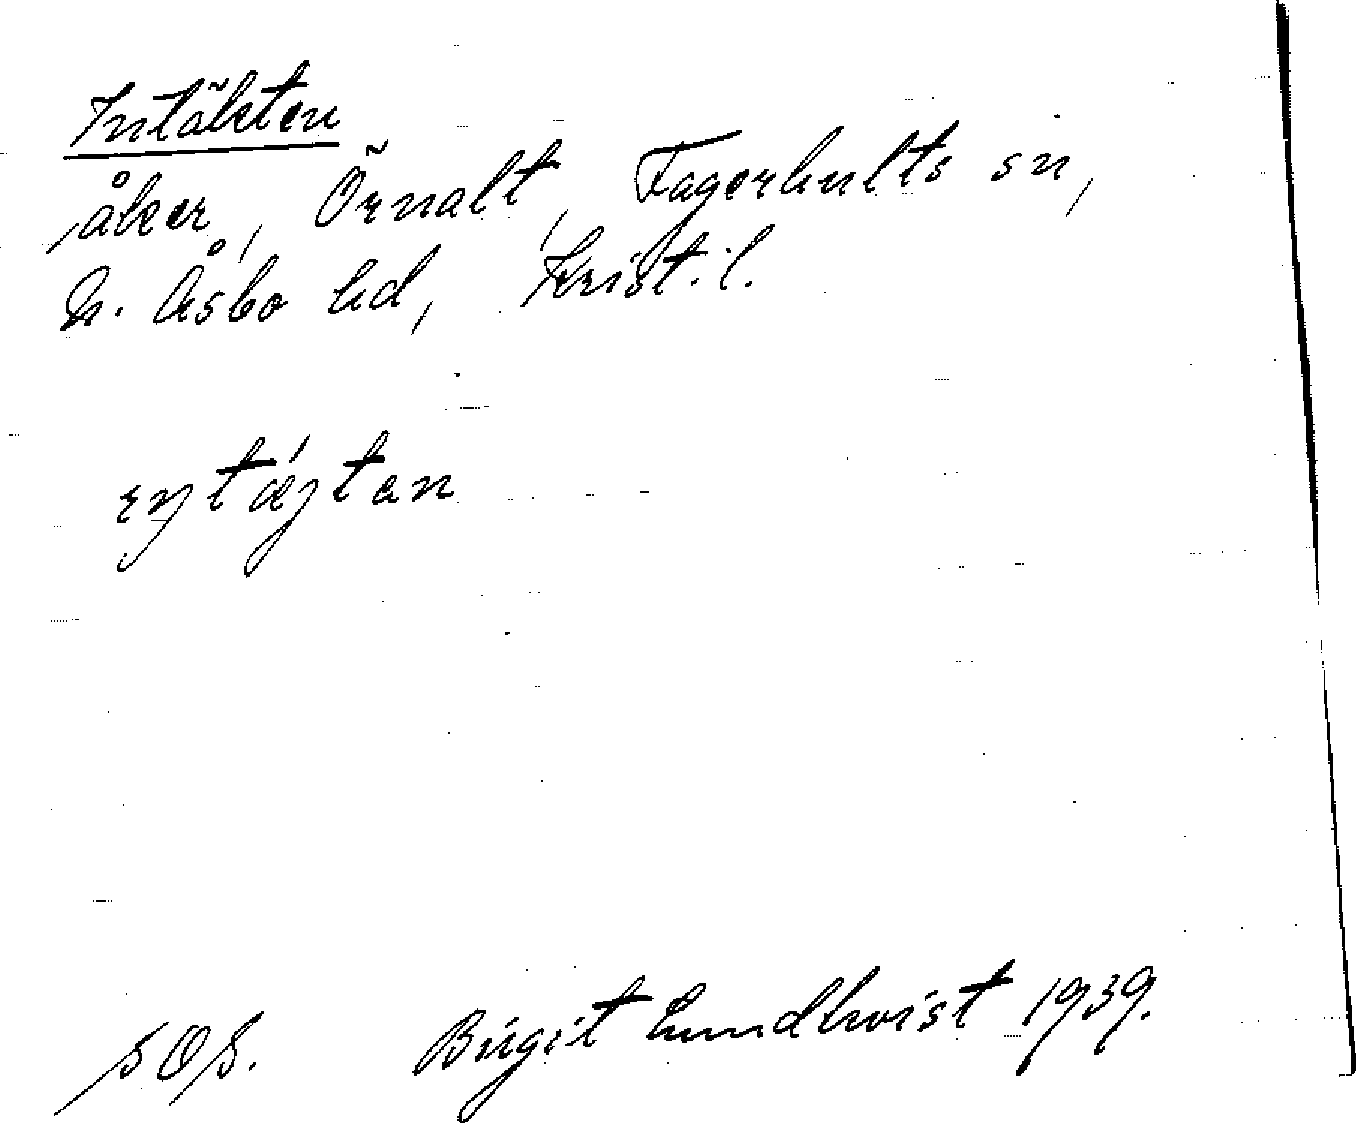 Intäkten
åker, Örnalt, Fagerhults sn,
N. Åsbo hd, Krist. l.
Birgit Lundkvist 1939.